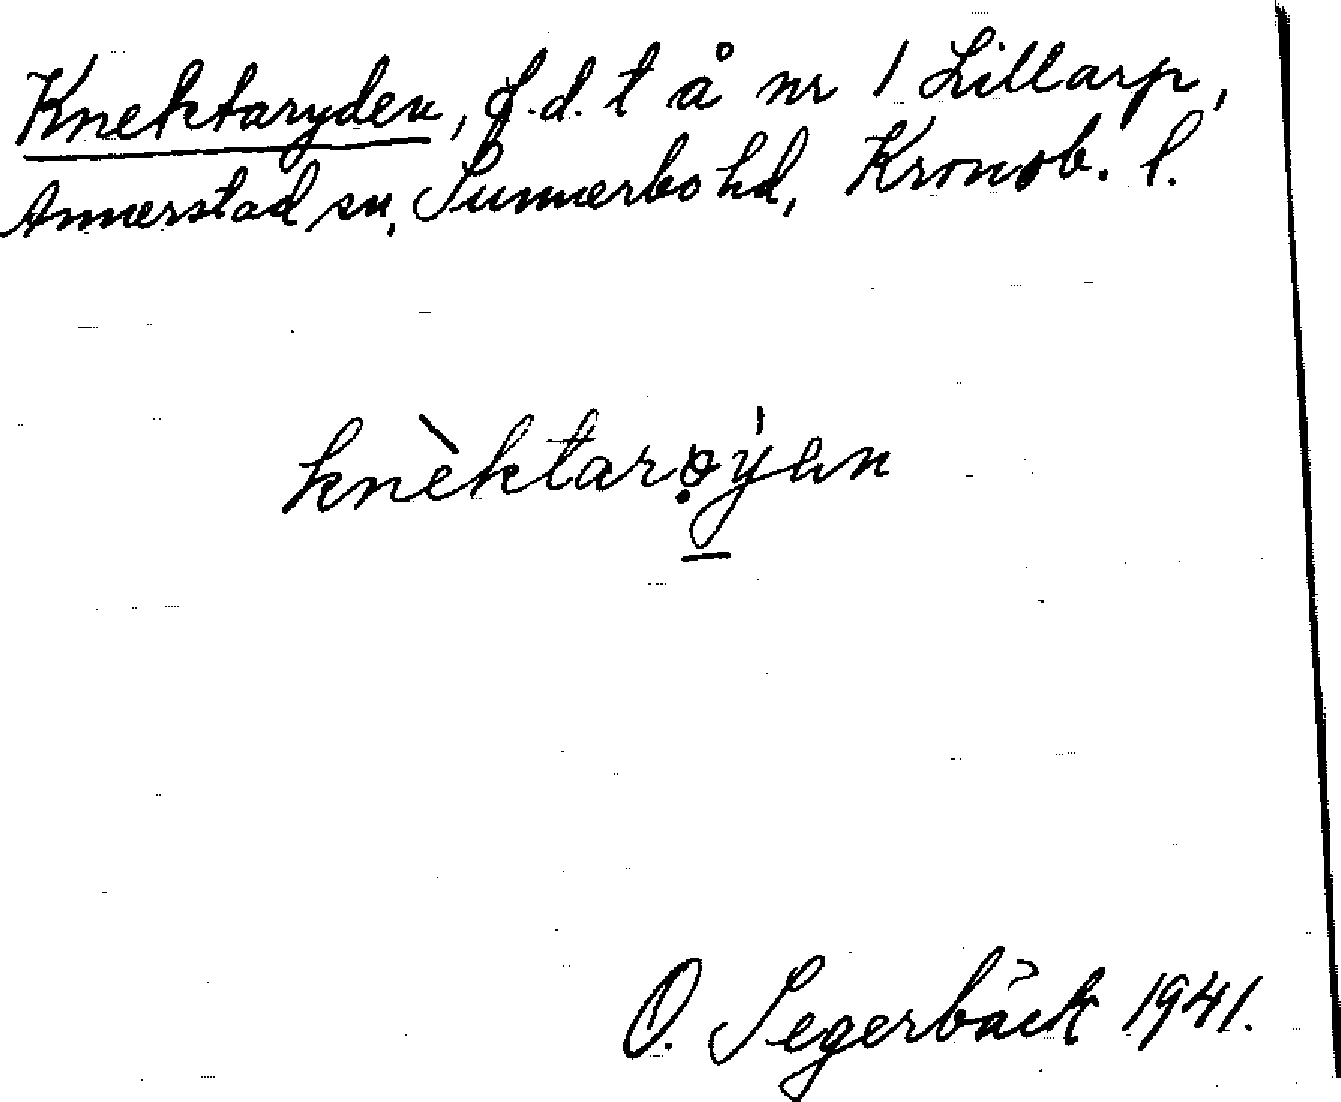 Knektaryden, f.d. t å nr 1 Lillarp,
Annerstad sn, Sunnerbo hd, Kronob. l.
knèktarøyan
O. Segerbäck 1941.